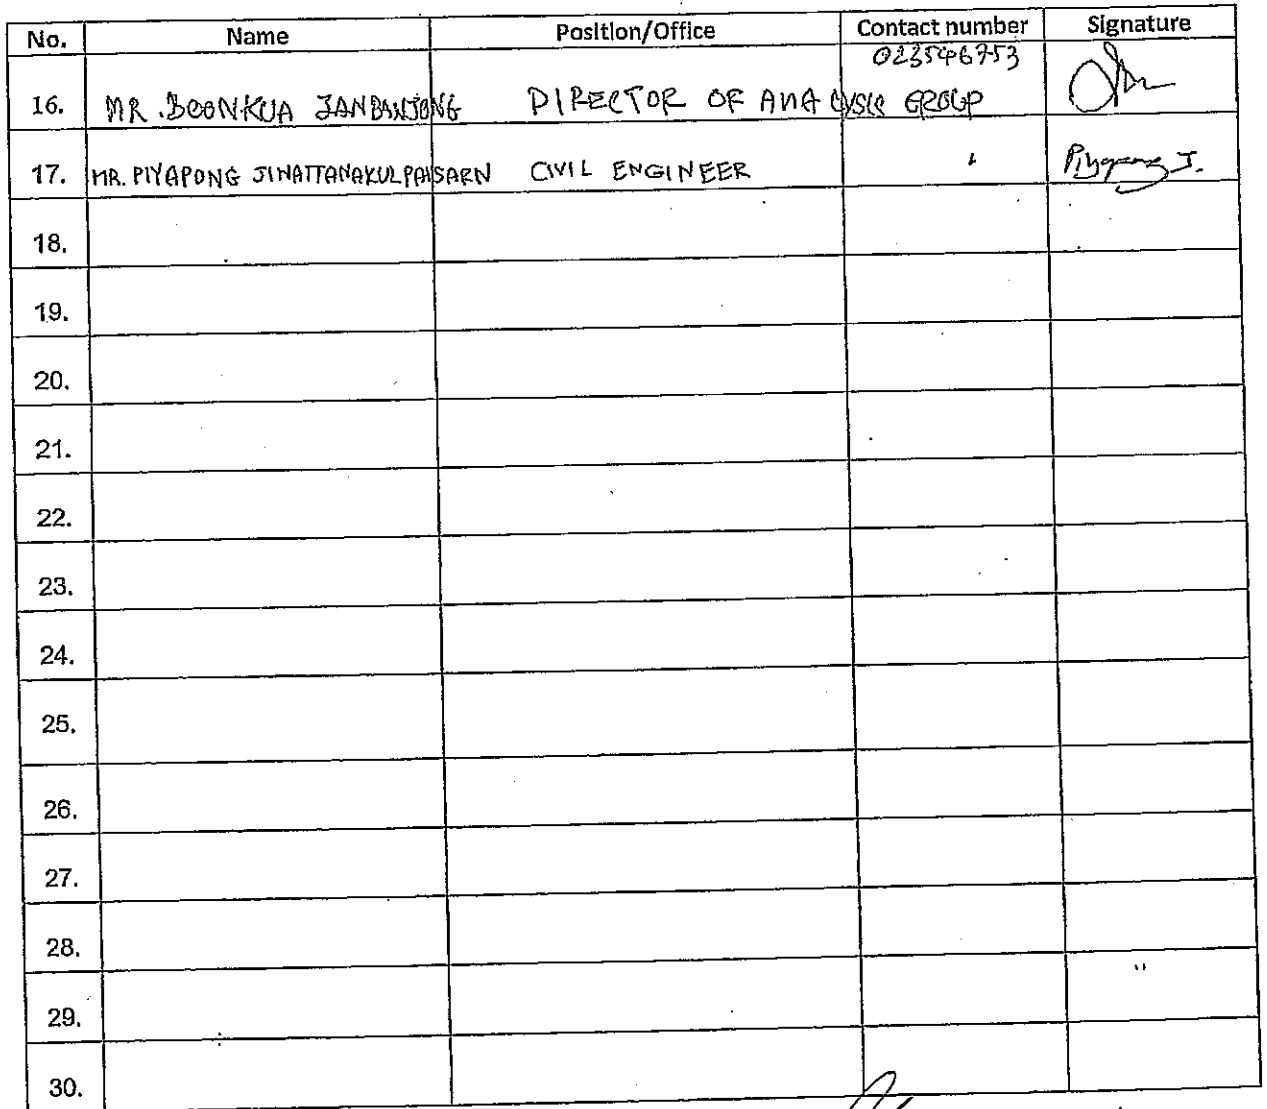 No. Name Position/Office Contact number Signature
023546753
16. MR. BOONKUA JANBANJONG DIRECTOR OF ANALYSIS GROUP
17. MR. PIYAPONG JINATTANAKULPAISARN CIVIL ENGINEER Piyapong J.
18.
19.
20.
21.
22.
23.
24.
25.
26.
27.
28.
29.
30.